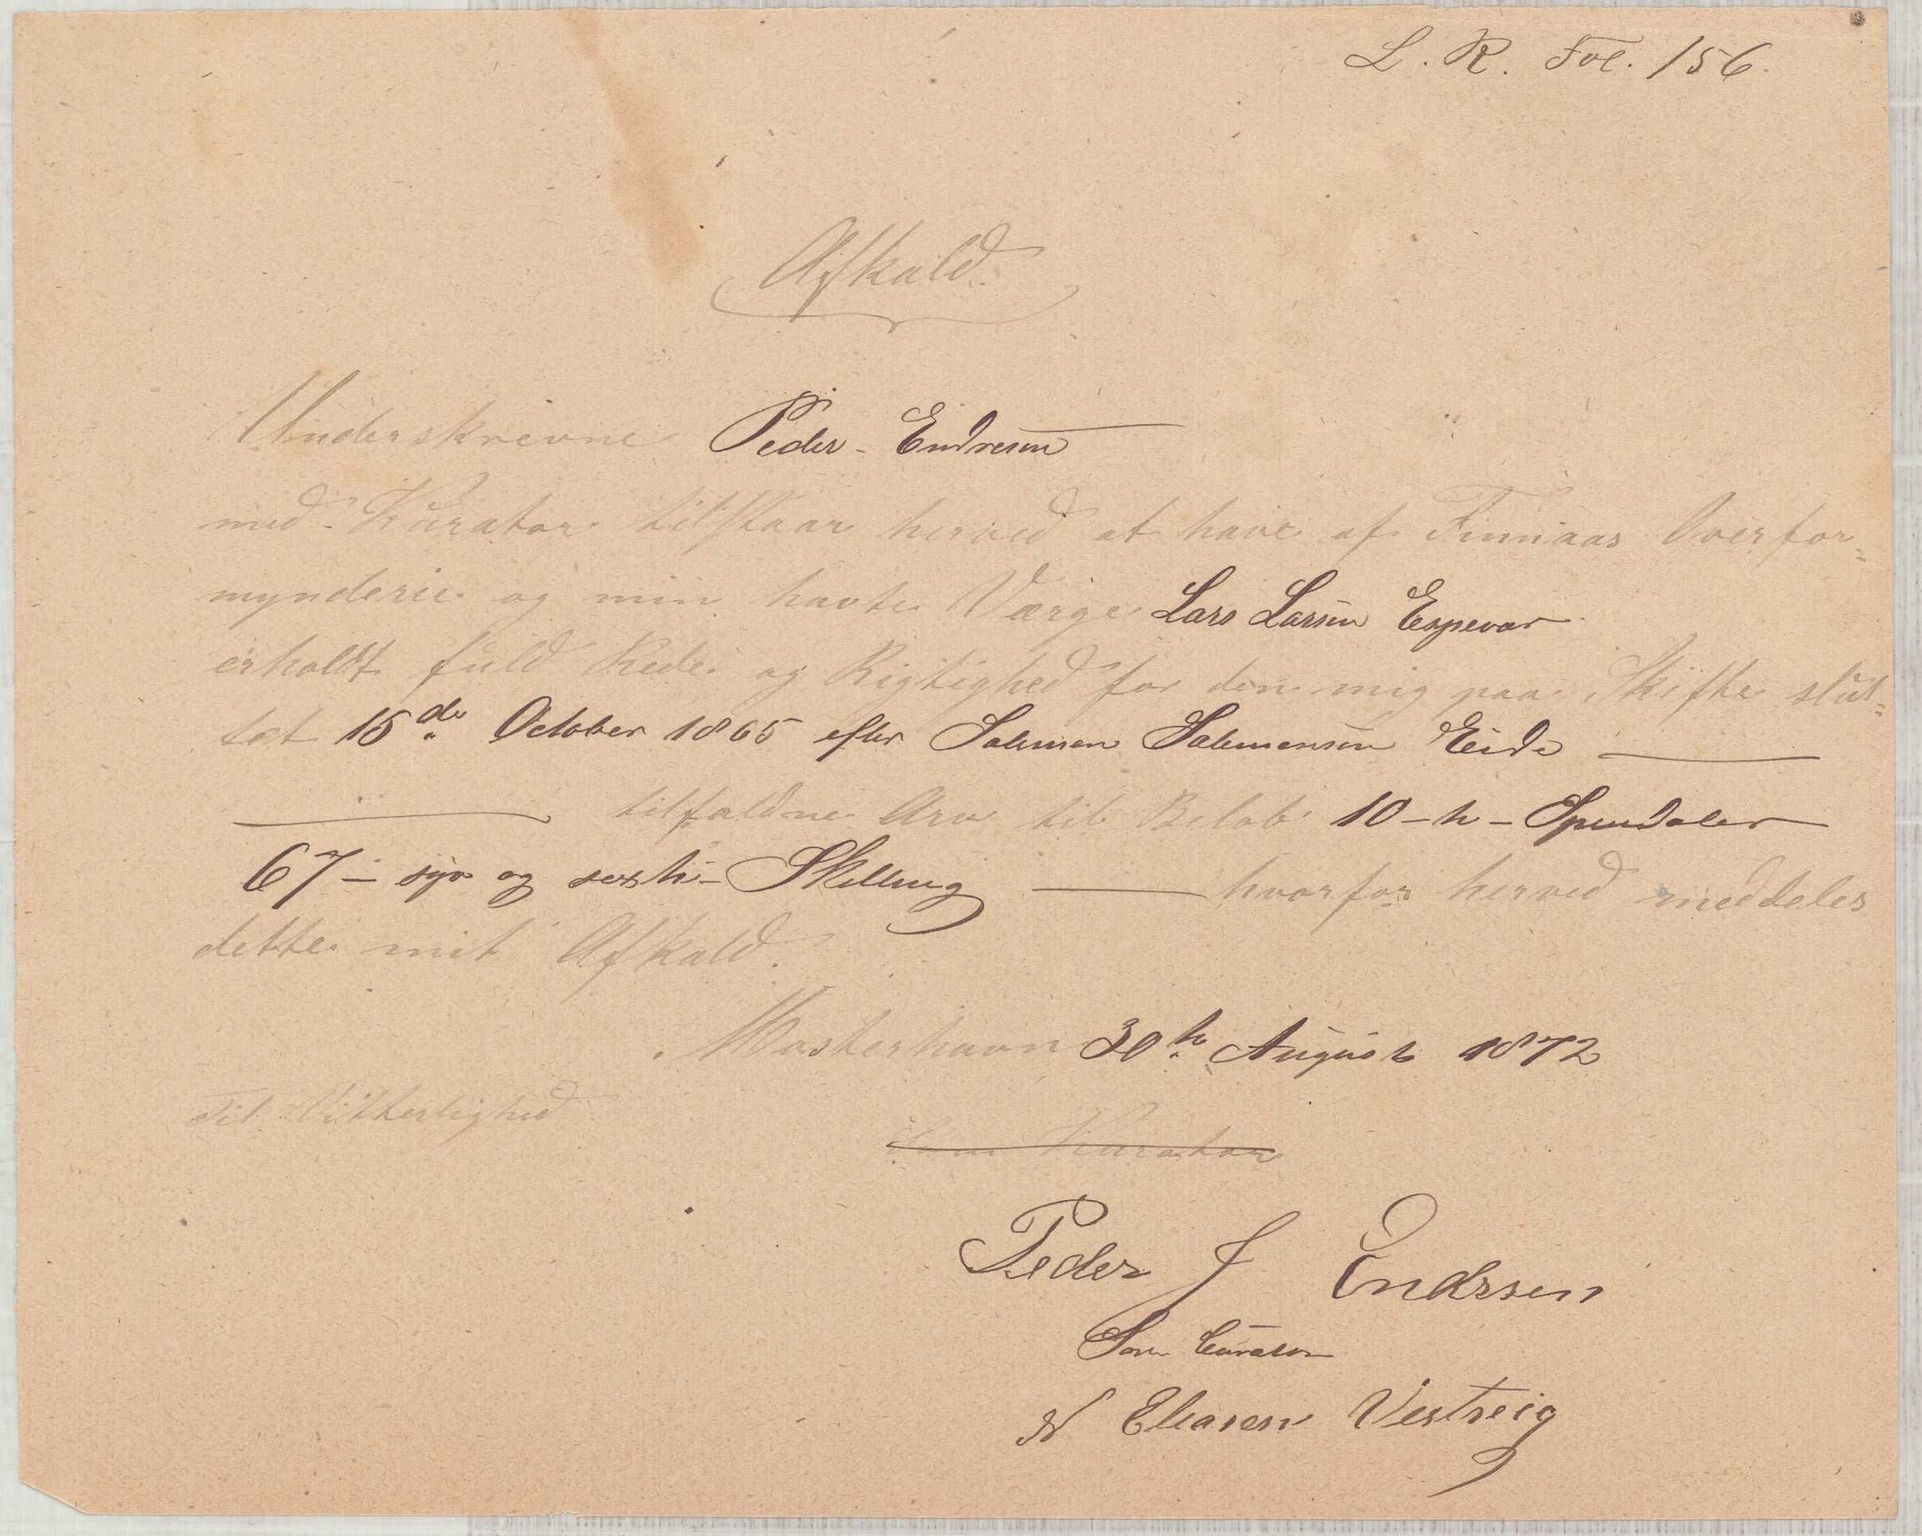 L. R. Fol. 156.
Afkald.
Underskrevne Peder Endresen
med Kurator tilstaar herved at have af Finnaas Overfor-
mynderie og min havte Værge Lars Larsen Espevær
erholdt fuld Rede og Rigtighed for den mig paa Skifte slut-
tet 15de October 1865 efter Salemon Salemonsen Eide
tilfaldne Arv til Beløb 10 - ti - Speciedaler
67 - syv og sexti - Skilling hvorfor herved meddeles
dette mit Afkald.
Mosterhavn 30te August 1872
Til Vitterlighed
Som Kurator
Peder J Endrsen
Som Curator
Eliasen Vestreig